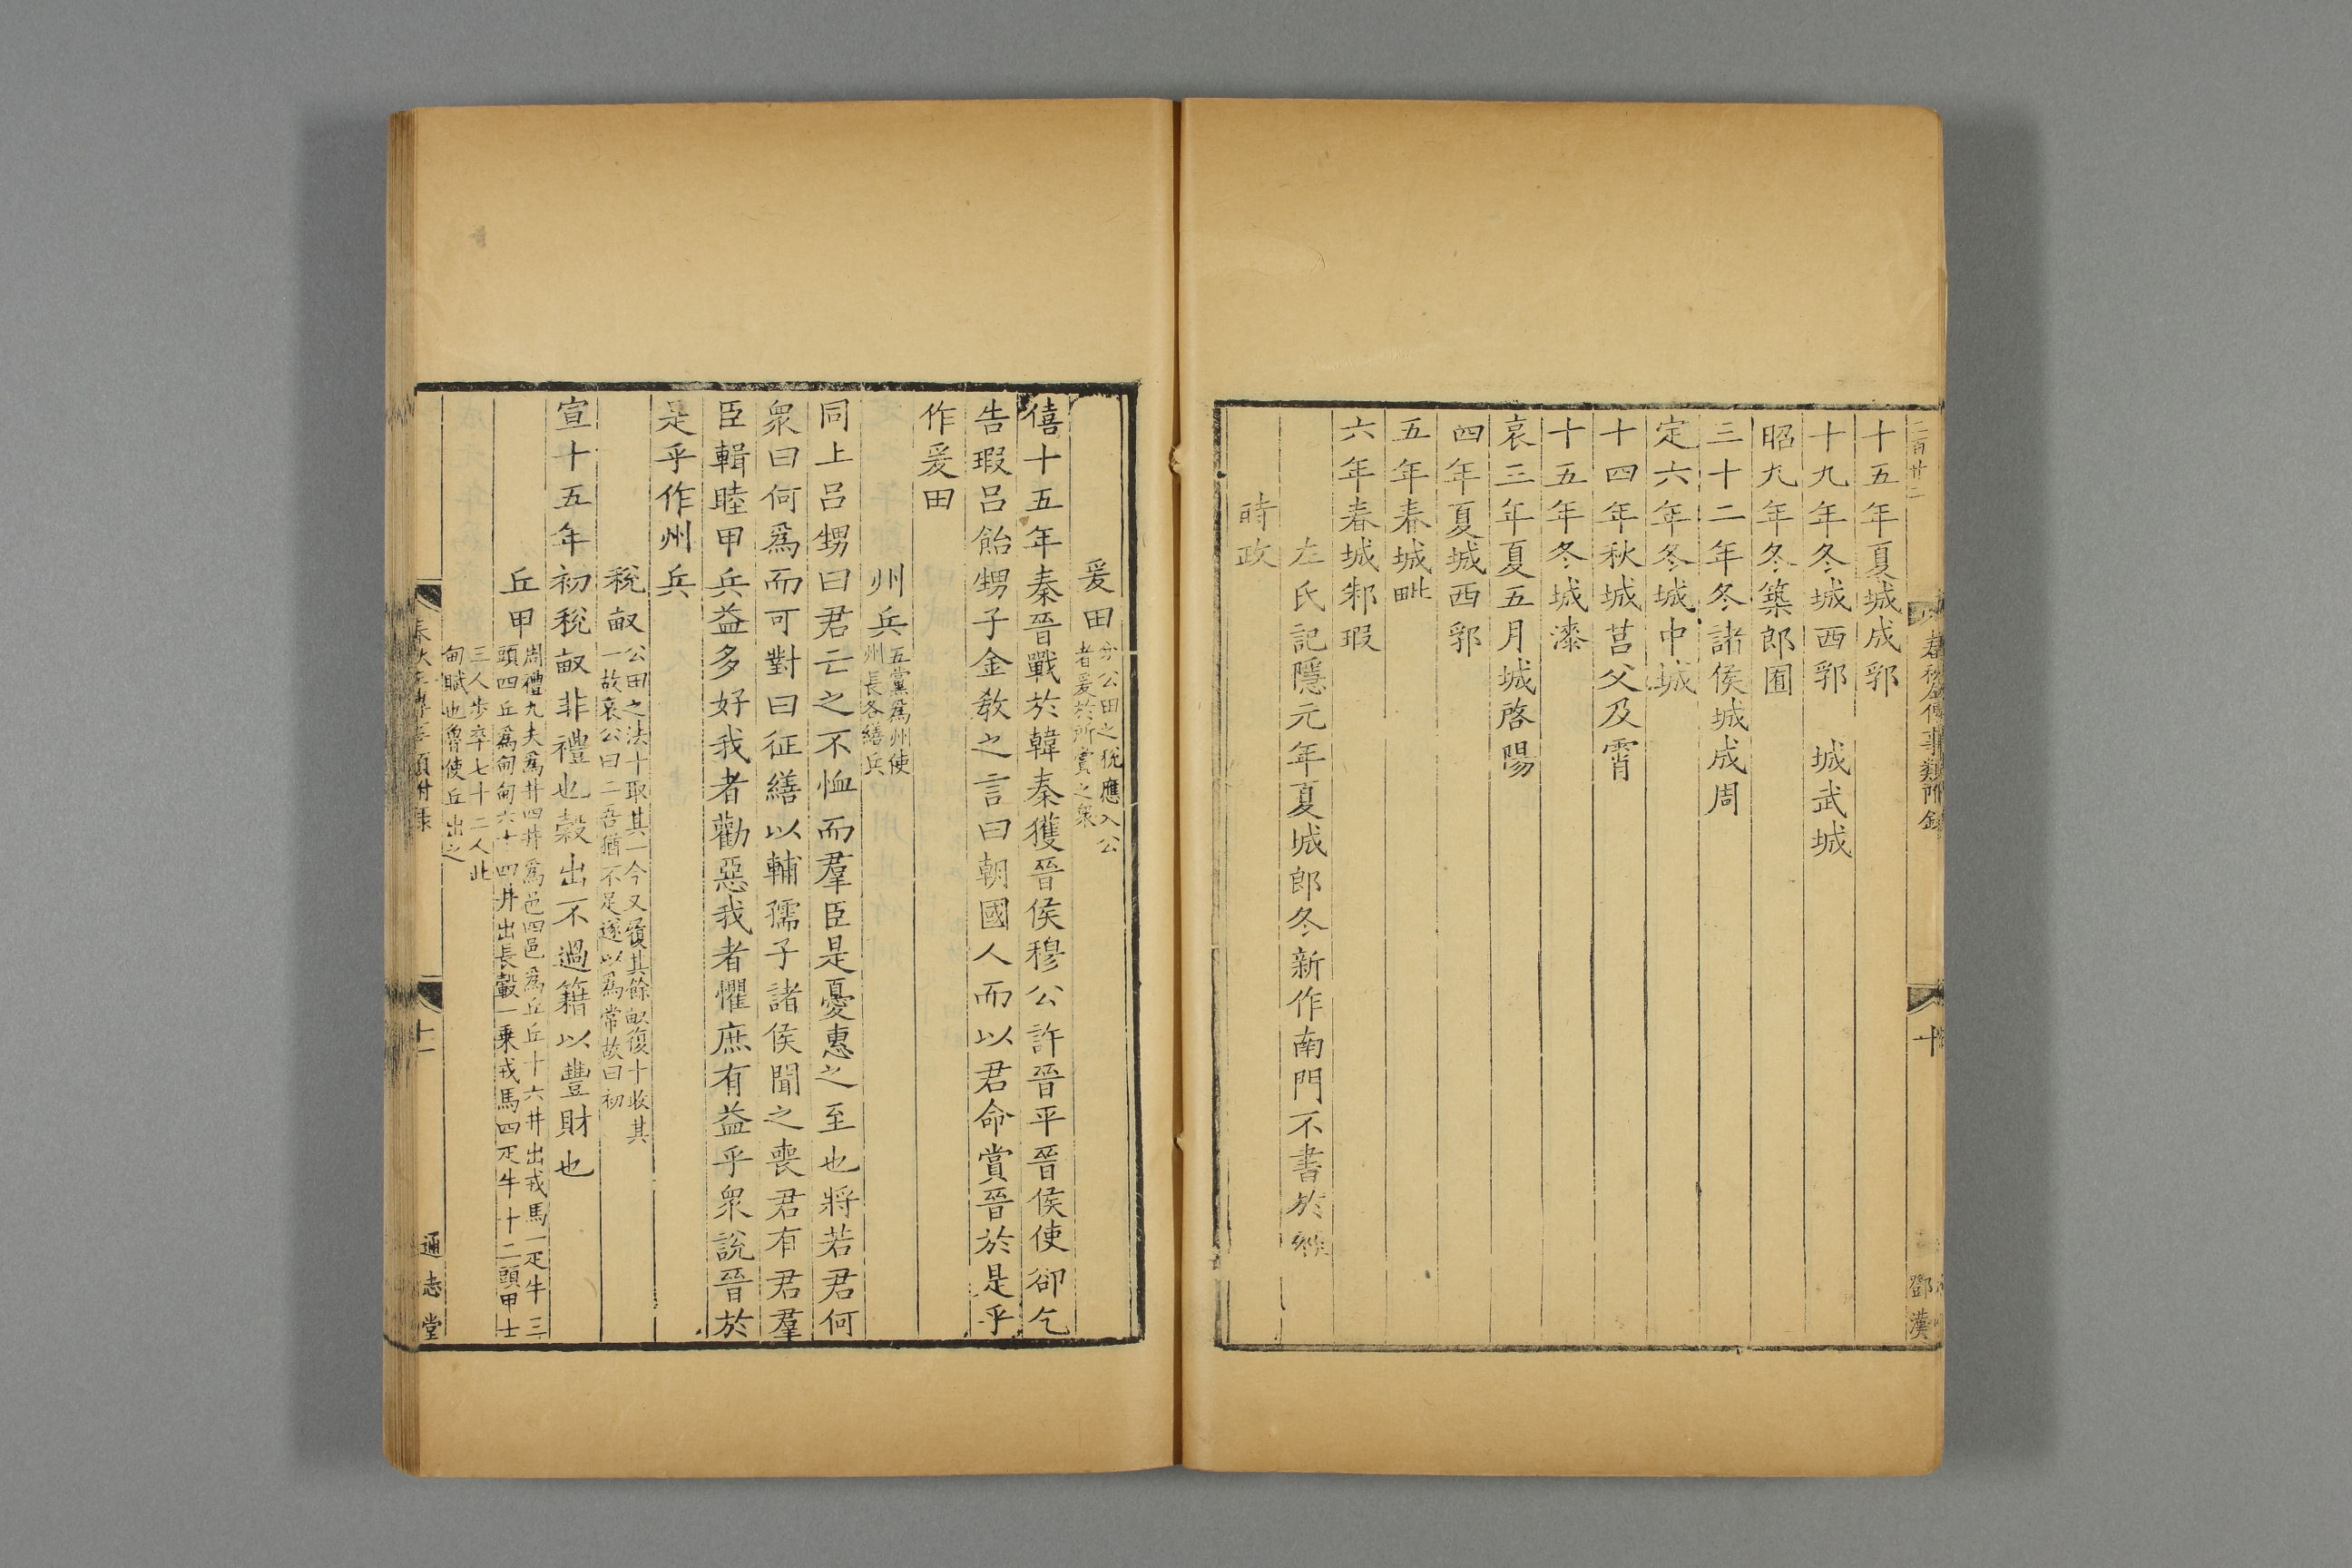 二百廿二
春秋左傳事類附錄
十
鄧漢
十五年夏城成郛
十九年冬城西郛　城武城
昭九年冬築郎囿
三十二年冬諸侯城成周
定六年冬城中城
十四年秋城莒父及霄
十五年冬城漆
哀三年夏五月城啓陽
四年夏城西郛
五年春城毗
六年春城邾瑕
左氏記隱元年夏城郎冬新作南門不書於經
時政
爰田
分公田之稅應入公
者爰於所賞之衆
僖十五年秦晉戰於韓秦獲晉侯穆公許晉平晉侯使郤乞
告瑕呂飴甥子金敎之言曰朝國人而以君命賞晉於是乎
作爰田
州兵
五黨爲州使
州長各繕兵
同上呂甥曰君亡之不恤而羣臣是憂惠之至也將若君何
衆曰何爲而可對曰征繕以輔孺子諸侯聞之喪君有君羣
臣輯睦甲兵益多好我者勸惡我者懼庶有益乎衆說晉於
是乎作州兵
稅畝
公田之法十取其一今又履其餘畝復十收其
一故哀公曰二吾猶不足遂以爲常故曰初
宣十五年初稅畝非禮也穀出不過籍以豐財也
丘甲
周禮九夫爲井四井爲邑四邑爲丘丘十六井出戎馬一疋牛三
頭四丘爲甸甸六十四井出長轂一乗戎馬四疋牛十二頭甲士
三人步卒七十二人此
甸賦也魯使丘出之
春秋左傳事類附錄
十一
通志堂